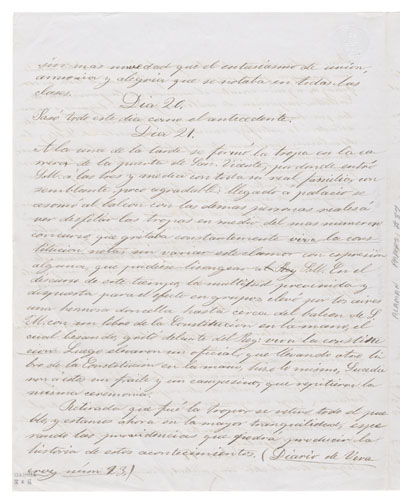 sino mas novedad que el entusiasmo de union,
armonia y alegria que se notaba en todas las
clases.
Dia 20.
Pasó todo este dia como el antecedente.
Dia 21.
A la una de la tarde se formó la tropa en la ca
rrera de la puerta de San Vicente, por donde entró
S.M. á las tres y media con toda su real familia, con
semblante poco agradable. Llegado á palacio se
asomó al balcon con las demas personas reales á
ver desfilar las tropas en medio del mas numeroso
concurso, que gritaba constantemente viva la cons
titucion, notas sin variar este clamor con expresion
alguna que pudiese lisongear al Rey S.M. En el
discurso de este tiempo, la multitud prevenida y
dispuesta para el efecto en grupos elevó por los aires
una hermosa doncella hasta cerca del balcon de S.
M. con un libro de la Constitucion en la mano, el
cual besando, gritó delante del Rey: viva la constitu
cion. Luego elevaron un oficial, que llevando otro li
bro de la Constitucion en la mano, hizo lo mismo,
un fraile y un campesino, que repitieron la
misma ceremonia.
Retirada que fué la tropa se retiró todo el pue
blo, y estamos ahora en la mayor tranquilidad, espe
rando las providencias que podrá producir la
historia de estos acontecimientos. (Diario de Vera
cruz núm. 23.)